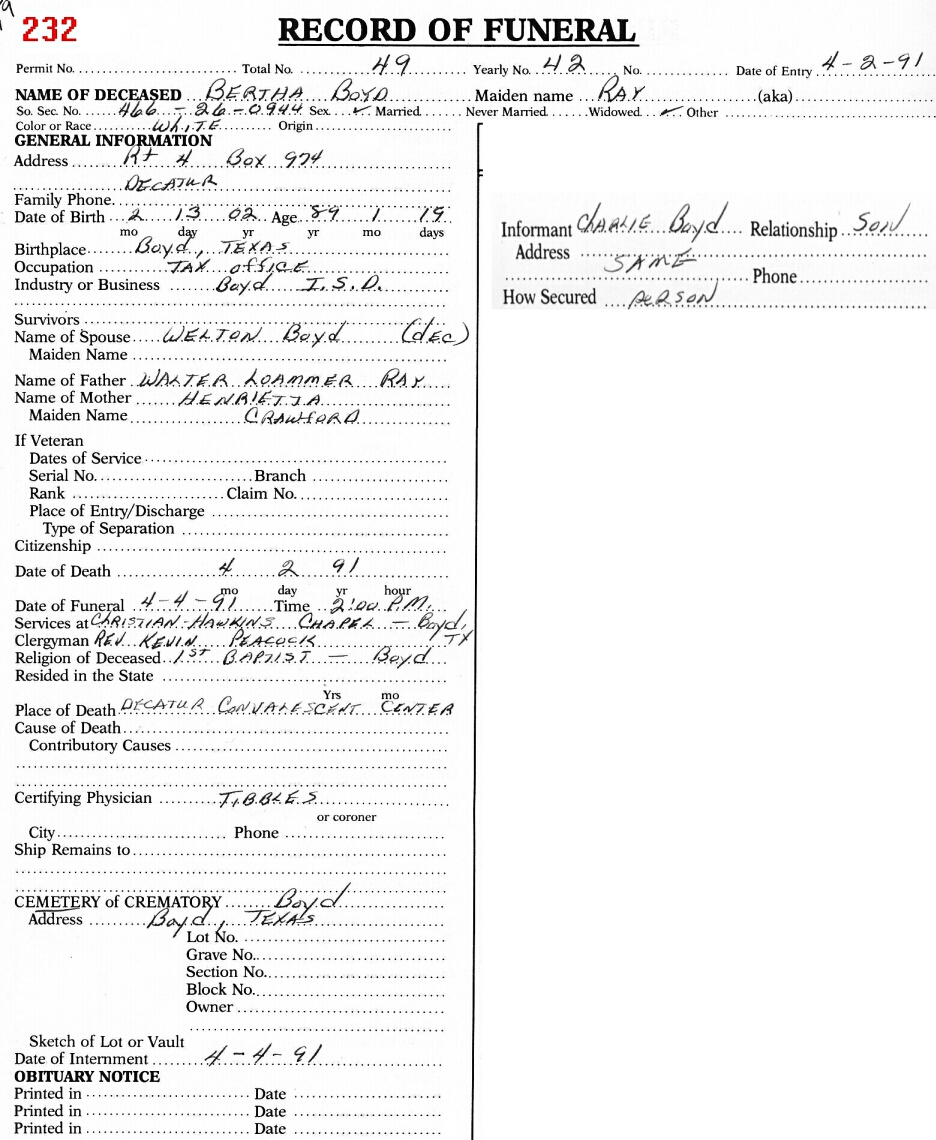 232
RECORD OF FUNERAL
Permit No. Total No. 49 Yearly No. 42 No. Date of Entry 4-2-91
NAME OF DECEASED BERTHA BOYD Maiden name RAY (aka)
So. Sec. No. 466-26-0944 Sex ✓ Married Never Married Widowed ✓ Other
Color or Race WHITE Origin
GENERAL INFORMATION
Address Rt 4 Box 974
DECATUR
Family Phone
Date of Birth 2 13 02 Age 89 1 19
mo day yr yr mo days
Birthplace Boyd, TEXAS
Occupation TAX OFFICE
Industry or Business Boyd I.S.D.
Survivors
Name of Spouse WELTON Boyd (dEC)
Maiden Name
Name of Father WALTER LOAMMER RAY
Name of Mother HENRIETTA
Maiden Name CRAWFORD
If Veteran
Dates of Service
Serial No. Branch
Rank Claim No.
Place of Entry/Discharge
Type of Separation
Citizenship
Date of Death 4 2 91
mo day yr hour
Date of Funeral 4-4-91 Time 2:00 P.M.
Services at CHRISTIAN-HAWKINS CHAPEL - Boyd, TX
Clergyman REV. KEVIN PEACOCK
Religion of Deceased 1ST BAPTIST - Boyd
Resided in the State
Yrs mo
Place of Death DECATUR CONVALESCENT CENTER
Cause of Death
Contributory Causes
Certifying Physician TIBBLES
or coroner
City Phone
Ship Remains to
CEMETERY of CREMATORY Boyd
Address Boyd, TEXAS
Lot No.
Grave No.
Section No.
Block No.
Owner
Sketch of Lot or Vault
Date of Internment 4-4-91
OBITUARY NOTICE
Printed in Date
Printed in Date
Printed in Date
Informant CHARLIE Boyd Relationship SON
Address SAME
Phone
How Secured PERSON